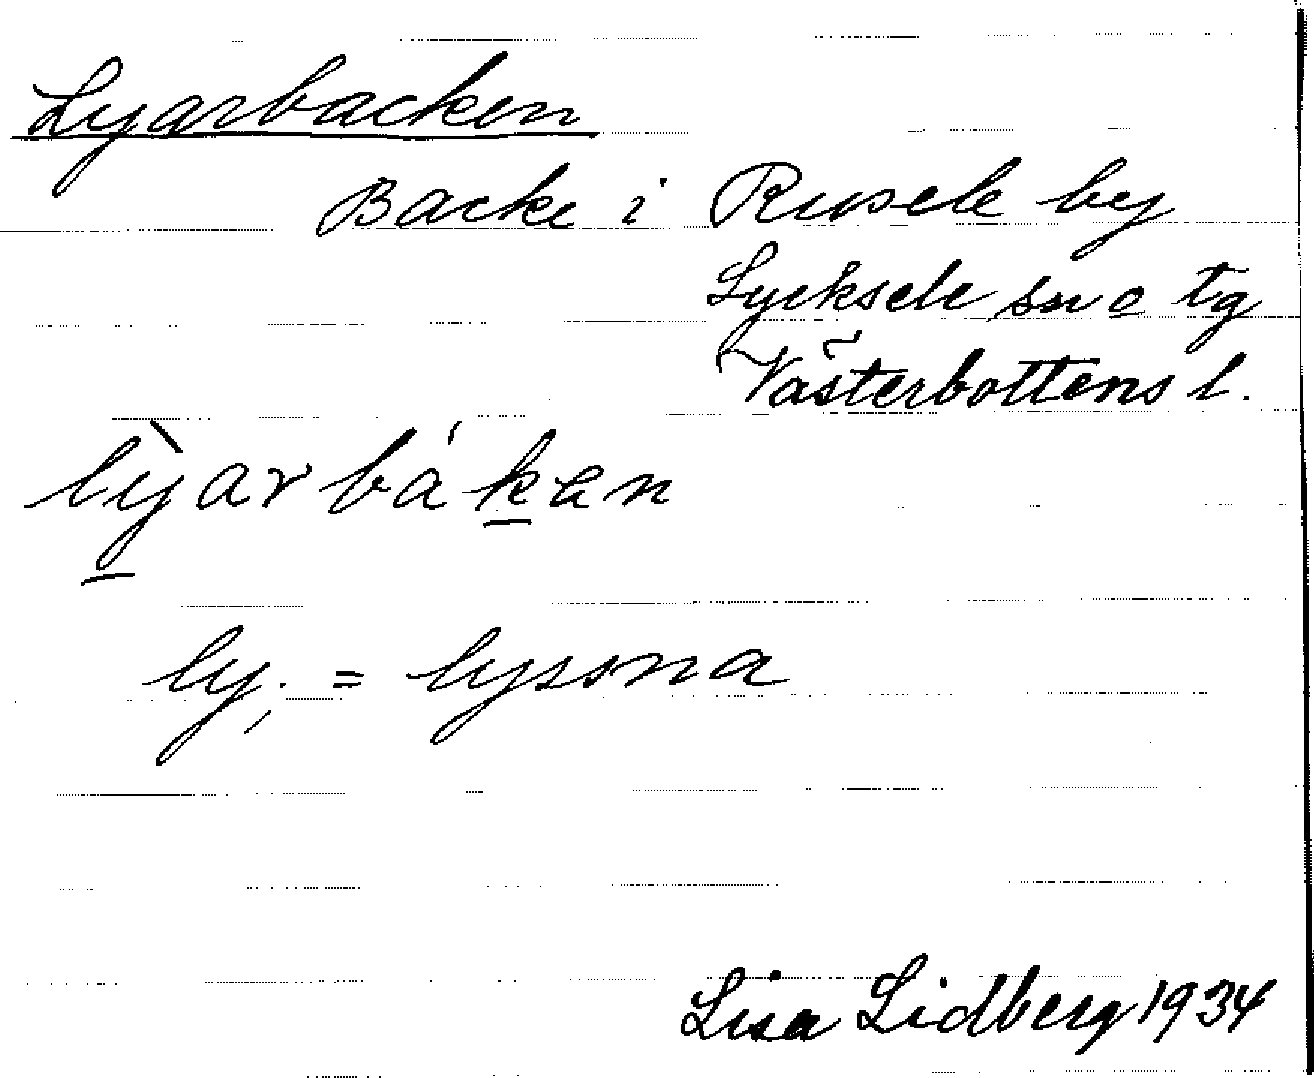 Lyarbacken
Backe i Rusele by
Lycksele sn o tg
Västerbottens l.
lỳarbákan
ly; = lyssna
Lisa Lidberg 1934